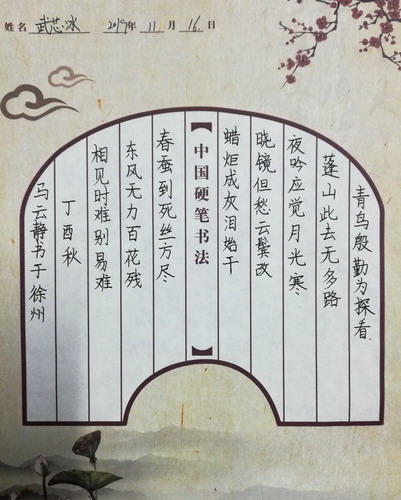 姓名 武芯冰 2019年 11 月 16 日
相见时难别易难
东风无力百花残
春蚕到死丝方尽
【中国硬笔书法】
蜡炬成灰泪始干
晓镜但愁云鬓改
夜吟应觉月光寒
蓬山此去无多路
青鸟殷勤为探看.
丁酉秋
马云静书于徐州